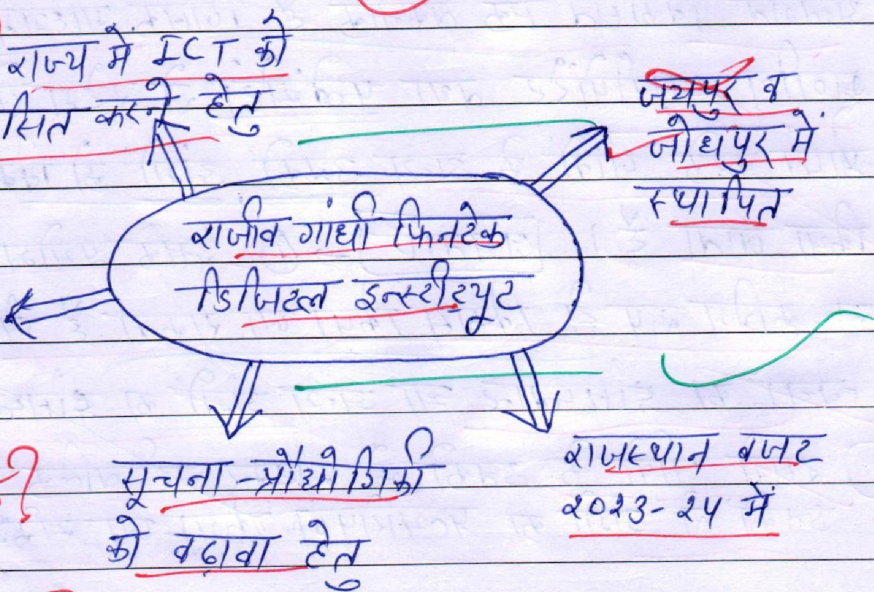 राज्य में ICT को
सित करने हेतु
जयपुर व
जोधपुर में
स्थापित
राजीव गांधी फिनटेक
डिजिटल इन्स्टीट्यूट
सूचना-प्रौद्योगिकी
को बढ़ावा हेतु
राजस्थान बजट
2023-24 में